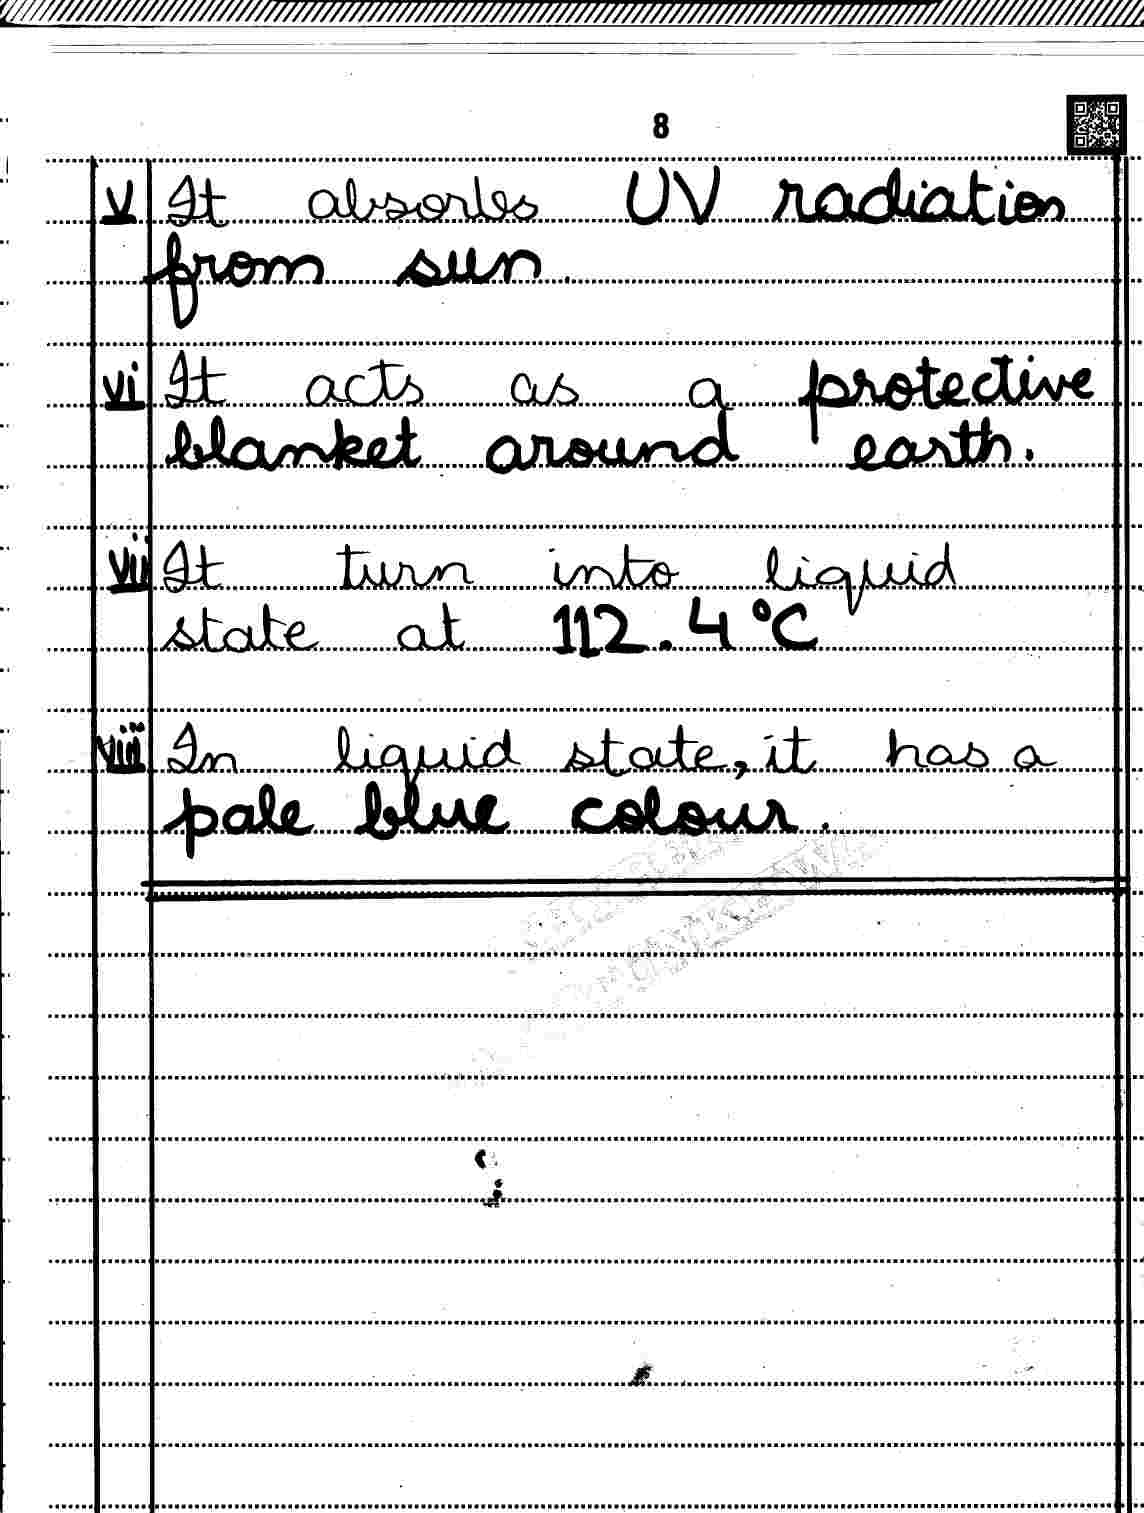 8
v It absorbs UV radiation
from sun.
vi It acts as a protective
blanket around earth.
vii It turn into liquid
state at 112.4°C
viii In liquid state, it has a
pale blue colour.